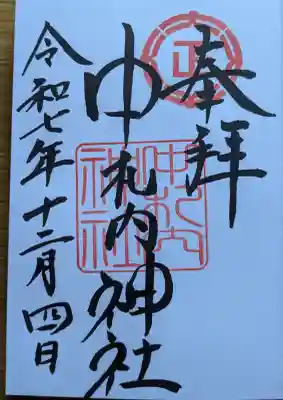 奉拝
中札内神社
令和七年十二月四日
中札内
神社